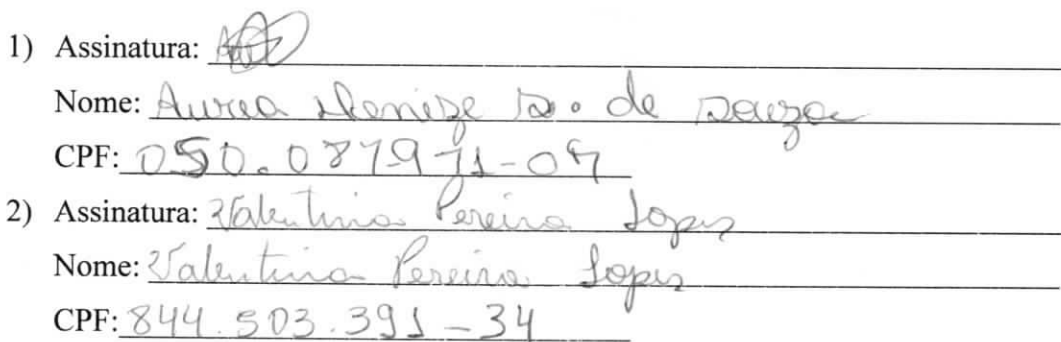 1) Assinatura:
Nome: Aurea Denize S. de Souza
CPF: 050.087971-07
2) Assinatura: Valentina Pereira Lopes
Nome: Valentina Pereira Lopes
CPF: 844.503.391-34